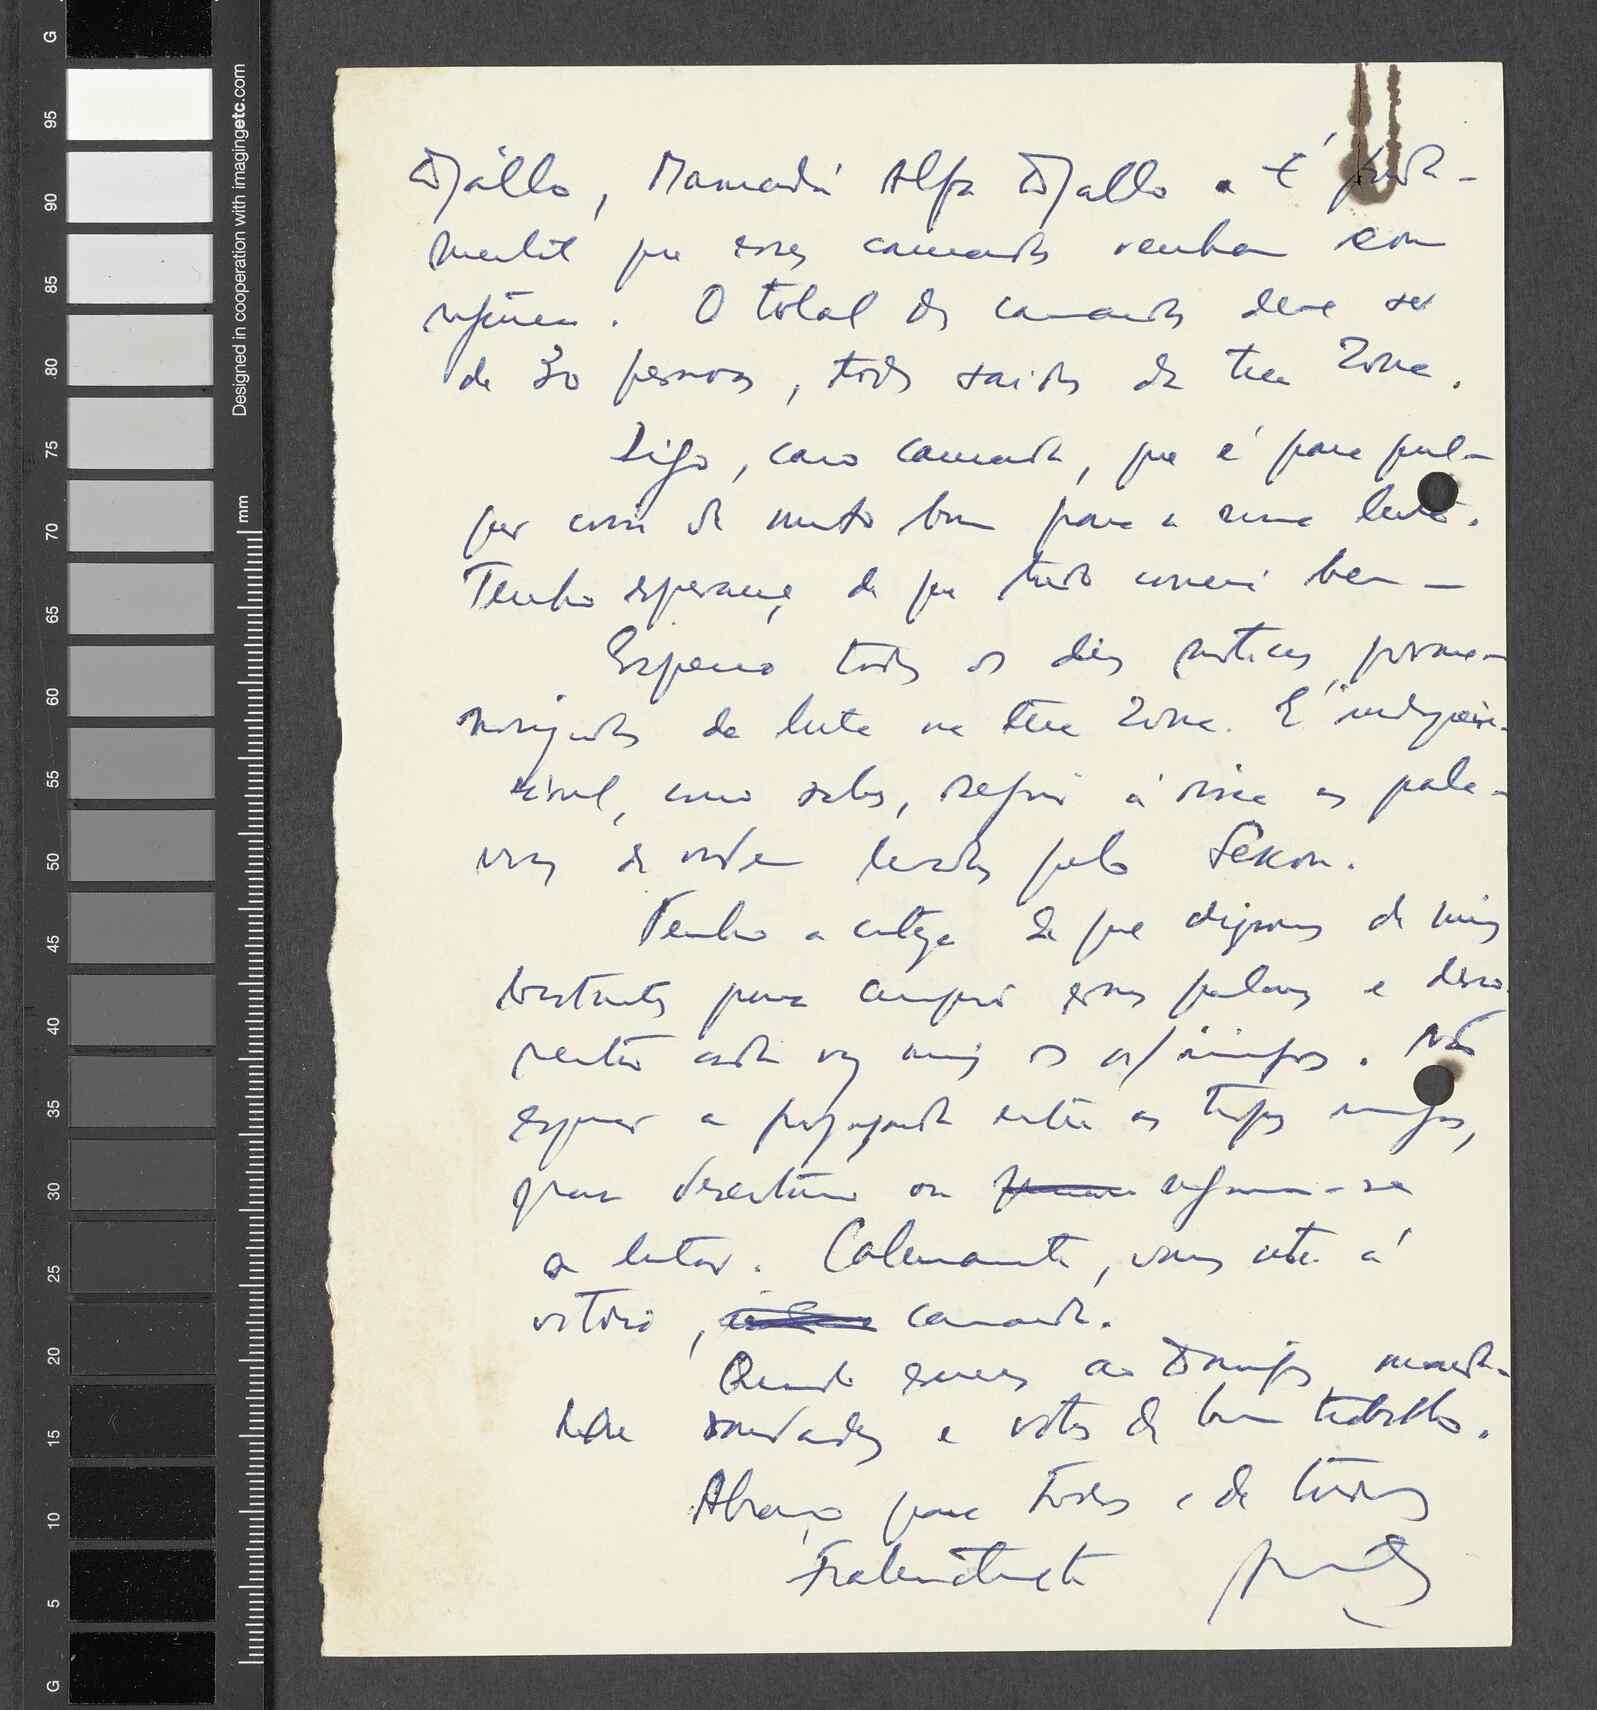 Djállo, Mamadú Alfa Djallo. É funda-
mental que esses camaradas venham com
urgência. O total dos camaradas deve ser
de 30 pessoas, todos saidos da tua Zona.
Digo, caro camarada, que é para
coisa de muito bom para a nossa luta.
Tenho esperança de que tudo correrá bem —
Espero todos os dias notícias
da luta na tua Zona. É indispen-
sável, como sabes, seguir à risca as pala-
vras de ordem levadas pelo Sékou.
Tenho a certeza de que dispões de meios
bastantes para cumprir essas palavras e
cada vez mais os n/inimigos. Não
esquecer a propaganda entre as tropas inimigas,
para desertarem ou recusarem-se
a lutar. Calmamente, vamos até à
vitória, camarada.
Quando escreves ao Domingos, manda-
lhe saudades e votos de bom trabalho.
Abraço para todos e de todos
Fraternalmente
G
95
90
85
80
75
70
65
60
55
50
45
40
35
30
25
20
15
10
5
G
mm
Designed in cooperation with imagingetc.com